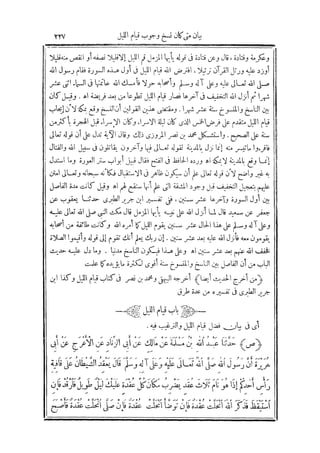 بيان متى كان نسخ وجوب قيام الليل ٢٢٧
وعكرمة وقتادة، قال وعن قتادة فى قوله يأيها المزمل قم الليل إلا قليلا نصفه أو انقص منه قليلا
أو زد عليه ورتل القرآن ترتيلا. افترض الله قيام الليل فى أول هذه السورة فقام رسول الله
صلى الله تعالى عليه وعلى آله وسلم وأصحابه حولا فأمسك الله خاتمتها فى السماء اثنى عشر
شهرا ثم أنزل الله التخفيف فى آخرها فصار قيام الليل تطوعا من بعد فريضة اهـ. وقيل كان
بين الناسخ والمنسوخ ستة عشر شهرا. ومقتضى هذين القولين أن النسخ وقع بمكة لأن إيجاب
قيام الليل متقدم على فرض الخمس الذى كان ليلة الإسراء وكان الإسراء قبل الهجرة بأكثر من
سنة على الصحيح. واستشكله محمد بن نصر المروزى ذلك وقال الآية تدل على أن قوله تعالى
فاقرءوا ما تيسر منه إنما نزل بالمدينة لقوله تعالى فيها وآخرون يقاتلون فى سبيل الله والقتال
إنما وقع بالمدينة لا بمكة اهـ ورده الحافظ فى الفتح فقال قبيل أبواب ستر العورة وما استدل
به غير واضح لأن قوله تعالى علم أن سيكون ظاهر فى الاستقبال فكأنه سبحانه وتعالى امتن
عليهم بتعجيل التخفيف قبل وجود المشقة التى علم أنها ستقع لهم اهـ وقيل كانت مدة الفاصل
بين أول السورة وآخرها عشر سنين. ففى تفسير ابن جرير الطبرى حدثنا يعقوب عن
جعفر عن سعيد قال لما أنزل الله على نبيه يأيها المزمل قال مكث النبى صلى الله تعالى عليه
وعلى آله وسلم على هذا الحال عشر سنين يقوم الليل كما أمره الله وكانت طائفة من أصحابه
يقومون معه فأنزل الله عليه بعد عشر سنين. إن ربك يعلم أنك تقوم إلى قوله وأقيموا الصلاة
فخفف الله عنهم بعد عشر سنين اهـ وعلى هذا فيكون الناسخ مدنيا. وما دل عليه حديث
الباب من أن الفاصل بين الناسخ والمنسوخ سنة أقوى لكثرة ما يؤيده كما علمت
﴿من أخرج الحديث أيضا﴾ أخرجه البيهقى ومحمد بن نصر فى كتاب قيام الليل وكذا ابن
جرير الطبرى فى تفسيره من عدة طرق
باب قيام الليل
أى فى بيان فضل قيام الليل والترغيب فيه.
﴿ص﴾ حَدَّثَنَا عَبْدُ اللهِ بْنُ مَسْلَمَةَ عَنْ مَالِكٍ عَنْ أَبِى الزِّنَادِ عَنِ الْأَعْرَجِ عَنْ أَبِى
هُرَيْرَةَ أَنَّ رَسُولَ اللهِ صَلَّى اللهُ تَعَالَى عَلَيْهِ وَعَلَى آلِهِ وَسَلَّمَ قَالَ يَعْقِدُ الشَّيْطَانُ عَلَى قَافِيَةِ
رَأْسِ أَحَدِكُمْ إِذَا هُوَ نَامَ ثَلَاثَ عُقَدٍ يَضْرِبُ مَكَانَ كُلِّ عُقْدَةٍ عَلَيْكَ لَيْلٌ طَوِيلٌ فَارْقُدْ فَإِنِ
اسْتَيْقَظَ فَذَكَرَ اللهَ انْحَلَّتْ عُقْدَةٌ فَإِنْ تَوَضَّأَ انْحَلَّتْ عُقْدَةٌ فَإِنْ صَلَّى انْحَلَّتْ عُقْدَةٌ فَأَصْبَحَ